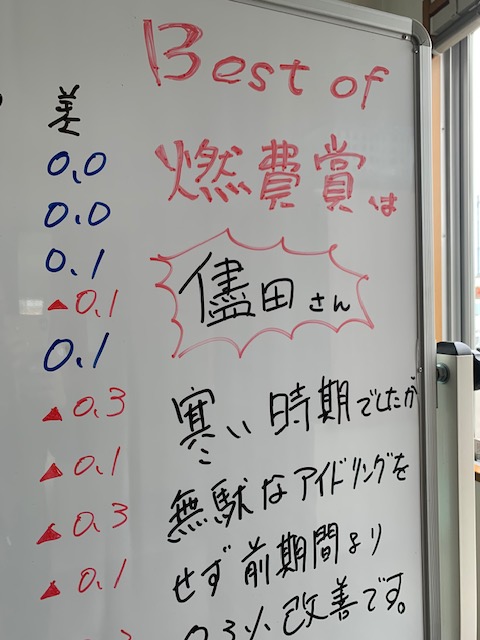 差
0.0
0.0
0.1
▲0.1
0.1
▲0.3
▲0.1
▲0.3
▲0.1
Best of
燃費賞は
儘田さん
寒い時期でしたが
無駄なアイドリングを
せず前期間より
0.3%改善です。